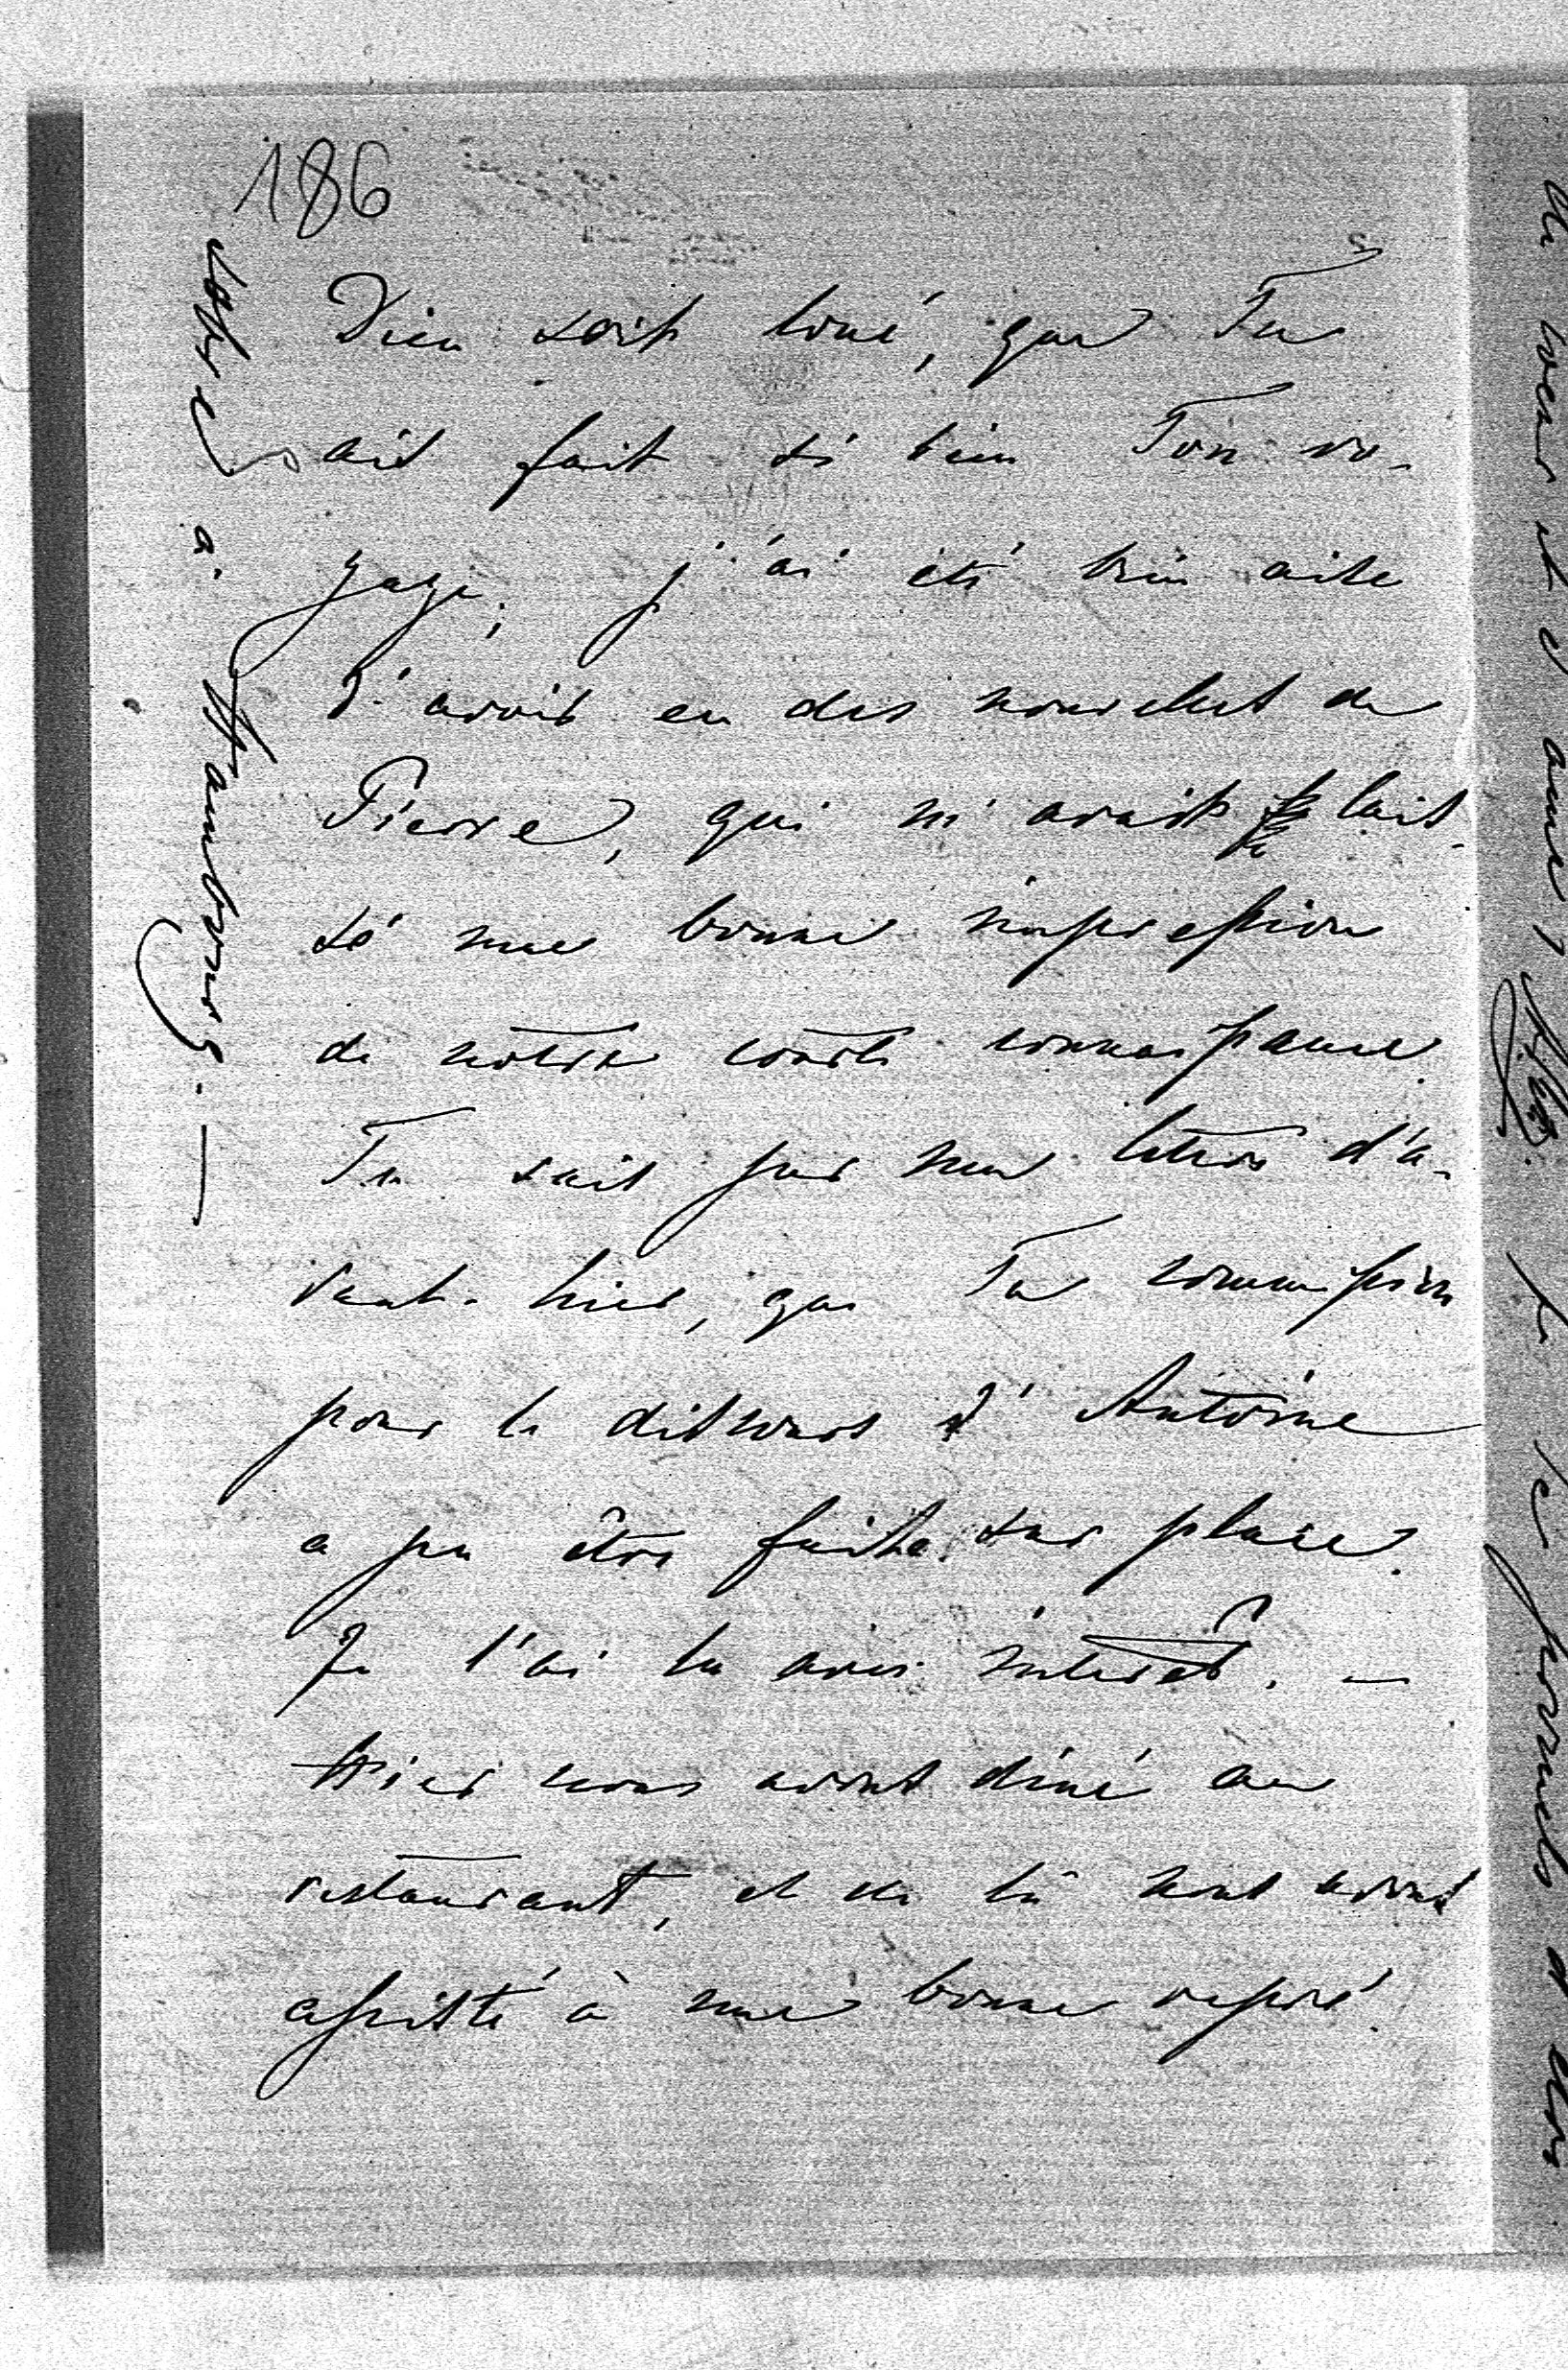 186
Dieu soit loué, que Tu
ais fait si bien Ton vo-
yage, j'ai été bien aise
d'avoir eu des nouvelles de
Pierre, qui m'avait lais-
sé une bonne impression
de notre courte connaissance.
Tu sais par ma lettre d'a-
vant-hier, que Ta commission
pour le discours d'Antoine
a pu être faite sur place.
Je l'ai lu avec intérêt. —
Hier nous avons diné au
restaurant, et de là nous avons
assisté à une bonne repré
a. Hambourg. —